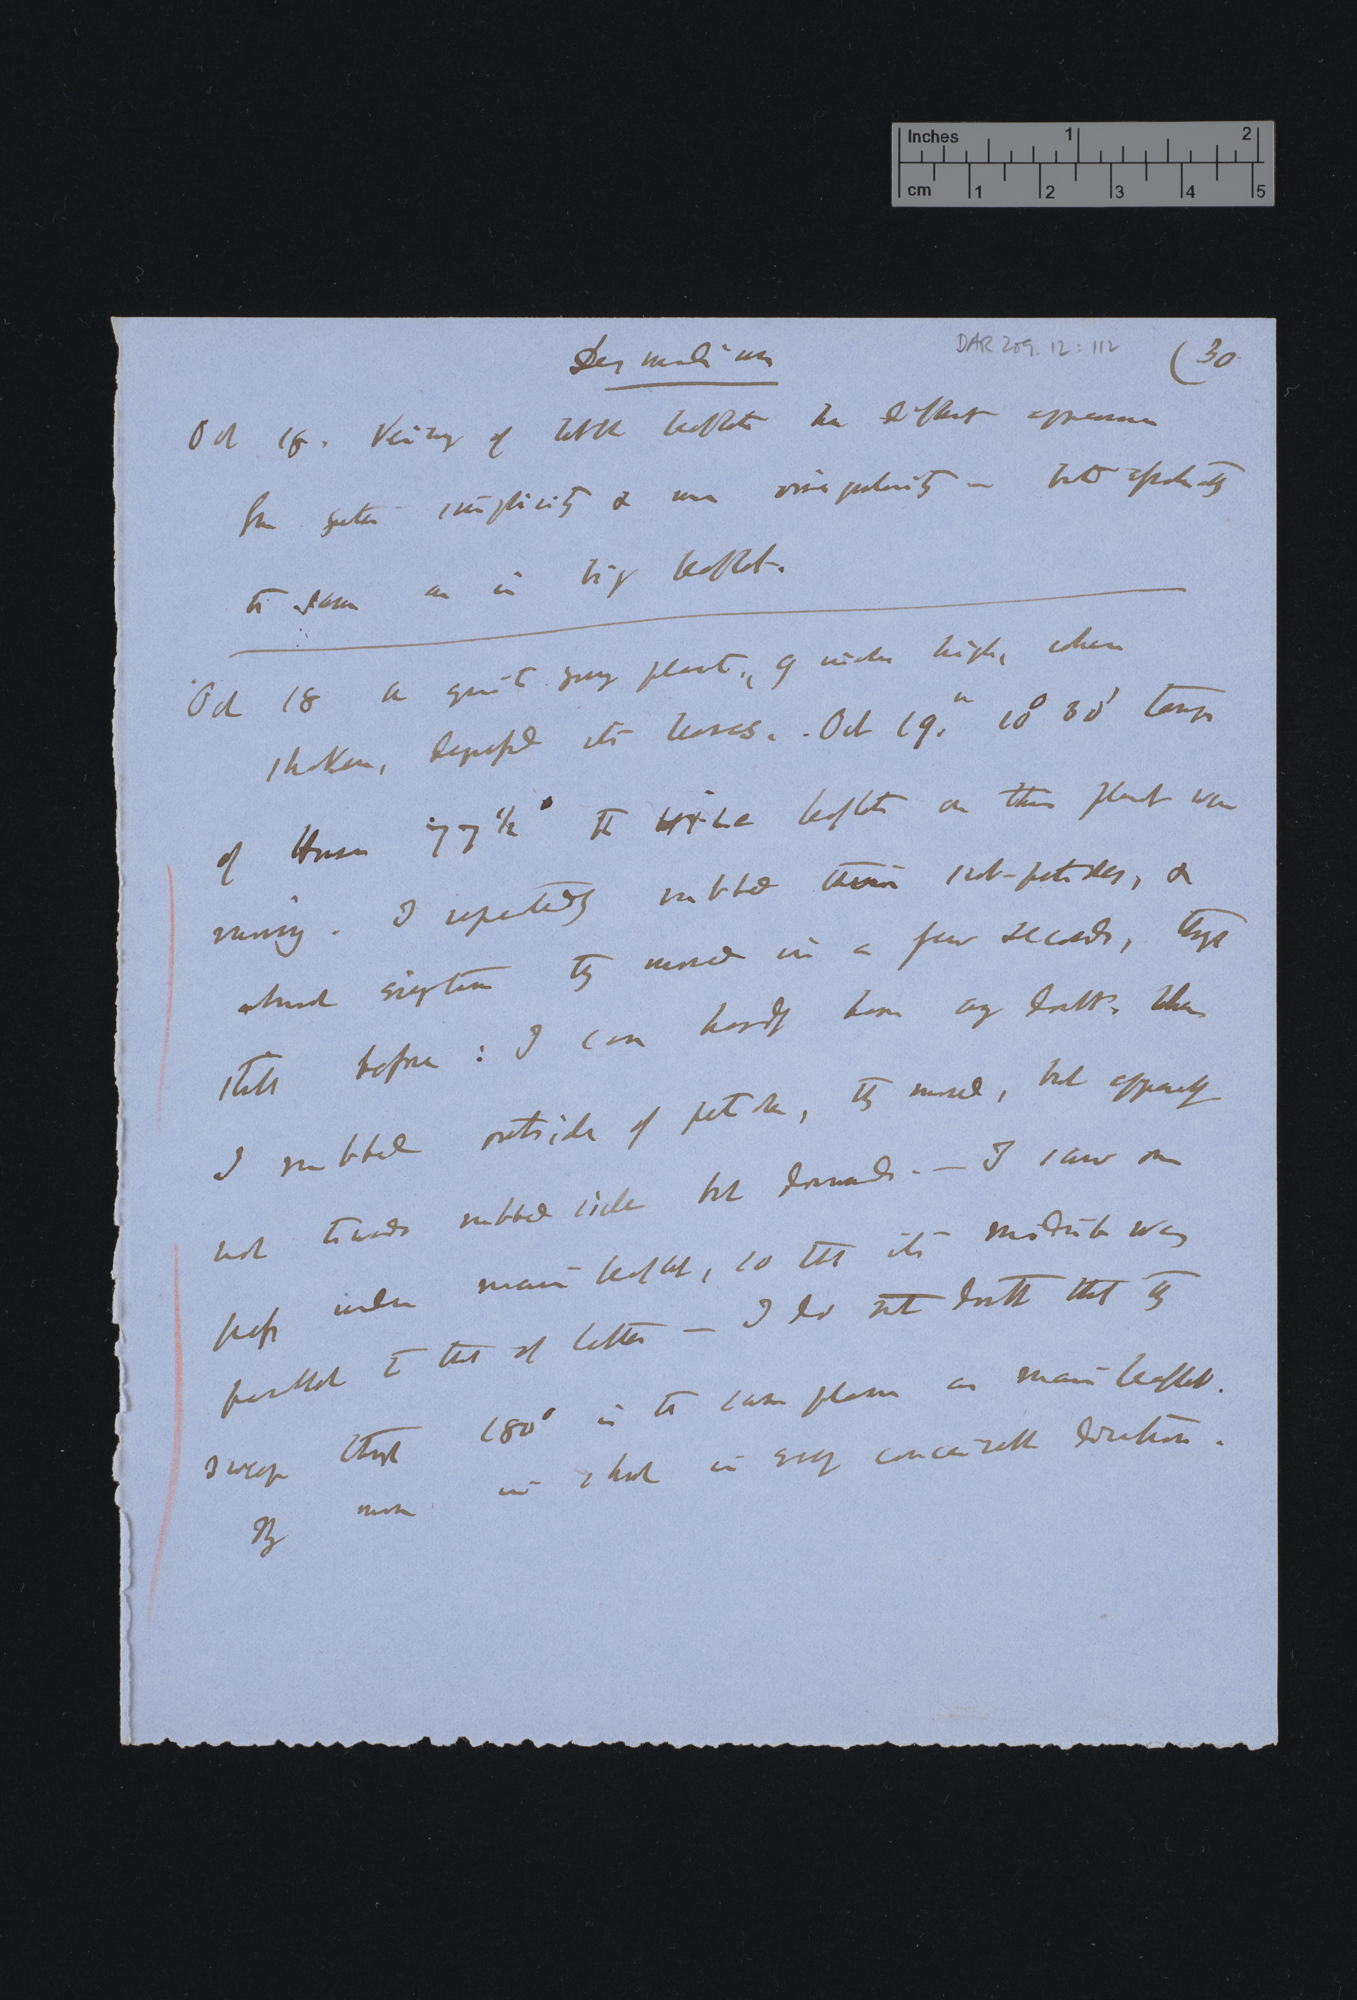 Inches 1 2
cm 1 2 3 4 5
DAR 209.12:112
(30
Desmodium
Oct 18. Veining of little leaflets has different appearance
from greater simplicity & more irregularity — but
to same as in big leaflet.
Oct 18 a quite young plant, 9 inches high, when
shaken, depressed its leaves. Oct 19. 10° 30' temp
of House 77½° the little leaflets on this plant were
moving. I repeatedly rubbed their sub-petioles, &
almost every time they moved in a few seconds, though
still before: I can hardly have any doubt. When
I rubbed outside of petiole, they moved, but apparently
not towards rubbed side but downwards. — I saw one
pass under main leaflet, so that its midrib was
parallel to that of latter — I do not doubt that they
sweep through 180° in the same plane as main leaflet.
They move in short in every conceivable direction.